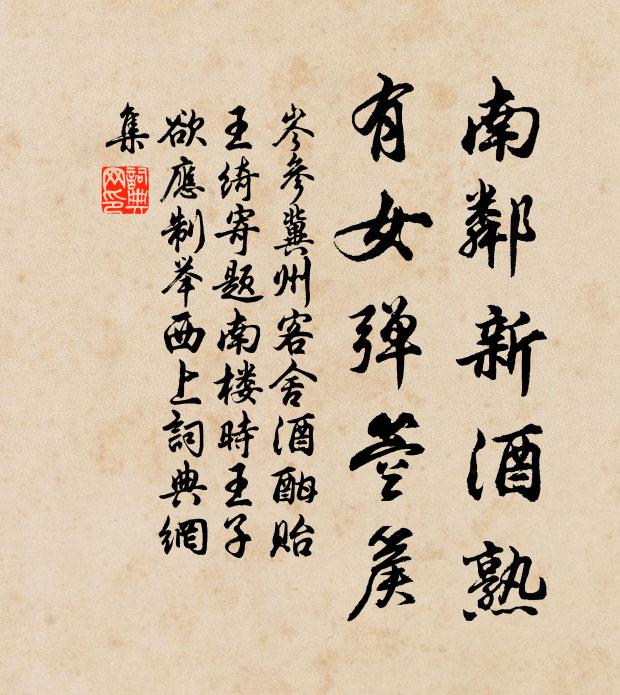 南鄰新酒熟
有女弹箜篌
岑參冀州客舍酒酣貽
王绮寄題南楼時王子
欲應制举西上詞典網
集
詞典
网印